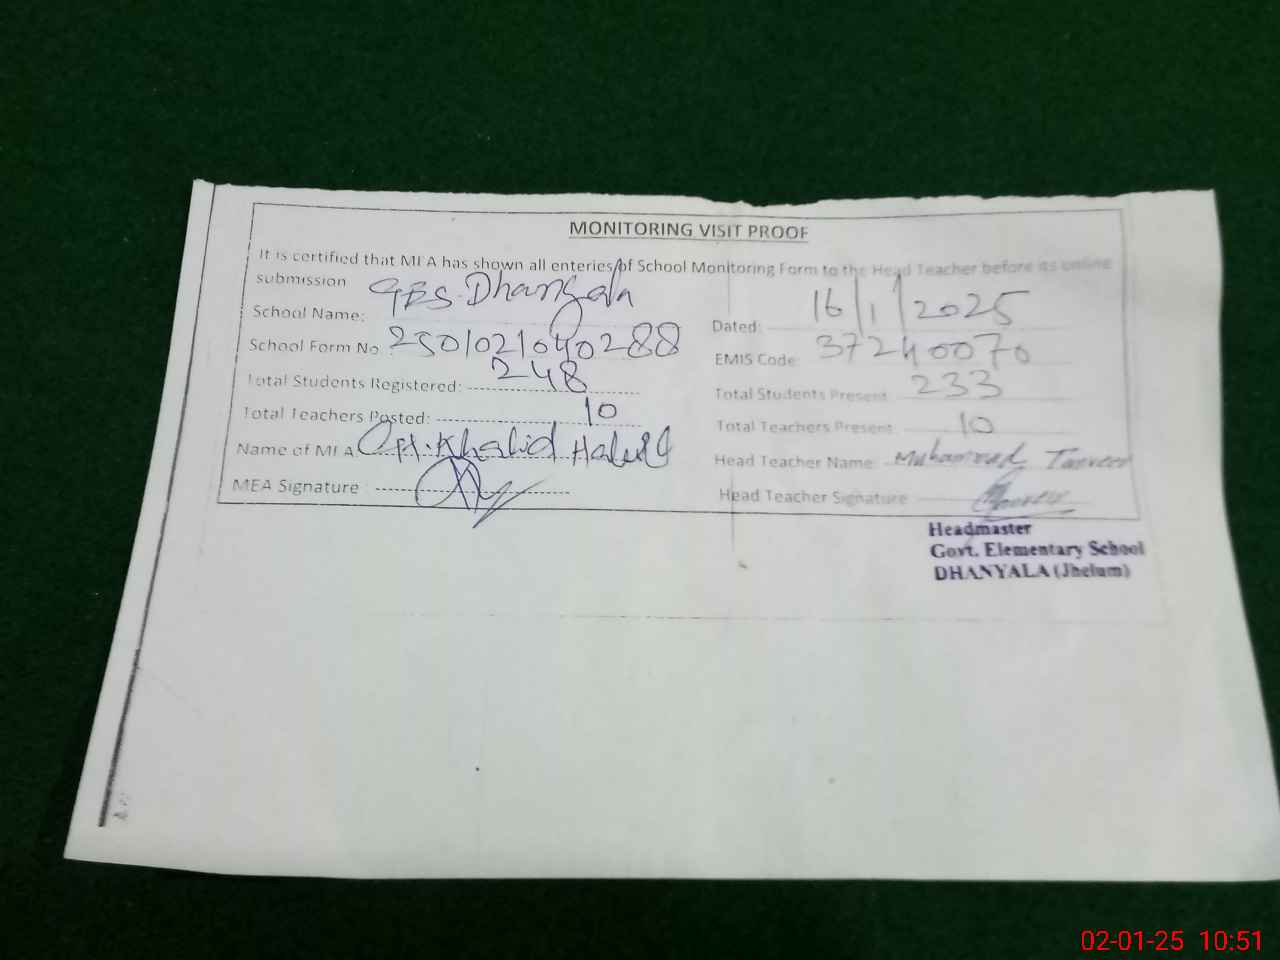 MONITORING VISIT PROOF
It is certified that MEA has shown all enteries of School Monitoring Form to the Head Teacher before its online
submission
School Name: GES. Dhanyala
Dated: 16/1/2025
School Form No: 2501021040288
EMIS Code: 37240070
Total Students Registered: 248
Total Students Present 233
Total Teachers Posted: 10
Total Teachers Present 10
Name of MEA Ch. Khalid
Head Teacher Name: Muhammad Tanveer
MEA Signature :
Head Teacher Signature
Headmaster
Govt. Elementary School
DHANYALA (Jhelum)
02-01-25 10:51